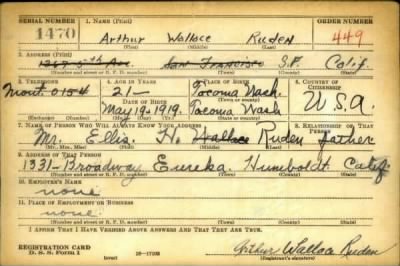 SERIAL NUMBER 1. NAME (Print) ORDER NUMBER
1470 Arthur Wallace Ruden 449
(First) (Middle) (Last)
2. ADDRESS (Print)
1267 5th Ave. San Francisco S.F. Calif.
(Number and street or R. F. D. number) (Town) (County) (State)
3. TELEPHONE 4. AGE IN YEARS 5. PLACE OF BIRTH 6. COUNTRY OF CITIZENSHIP
Mont. 0154 21- Tacoma Wash.
DATE OF BIRTH
May 19 1919. Tacoma Wash U.S.A.
7. NAME OF PERSON WHO WILL ALWAYS KNOW YOUR ADDRESS 8. RELATIONSHIP OF THAT PERSON
Mr. Ellis. H. Wallace Ruden father
(Mr., Mrs., Miss) (First) (Middle) (Last)
9. ADDRESS OF THAT PERSON
1331- Broadway Eureka Humboldt Calif
(Number and street or R. F. D. number) (Town) (County) (State)
10. EMPLOYER'S NAME
none
11. PLACE OF EMPLOYMENT OR BUSINESS
none.
(Number and street or R. F. D. number) (Town) (County) (State)
I AFFIRM THAT I HAVE VERIFIED ABOVE ANSWERS AND THAT THEY ARE TRUE.
REGISTRATION CARD
D. S. S. Form 1 16-17105 Arthur Wallace Ruden
(Registrant's signature)